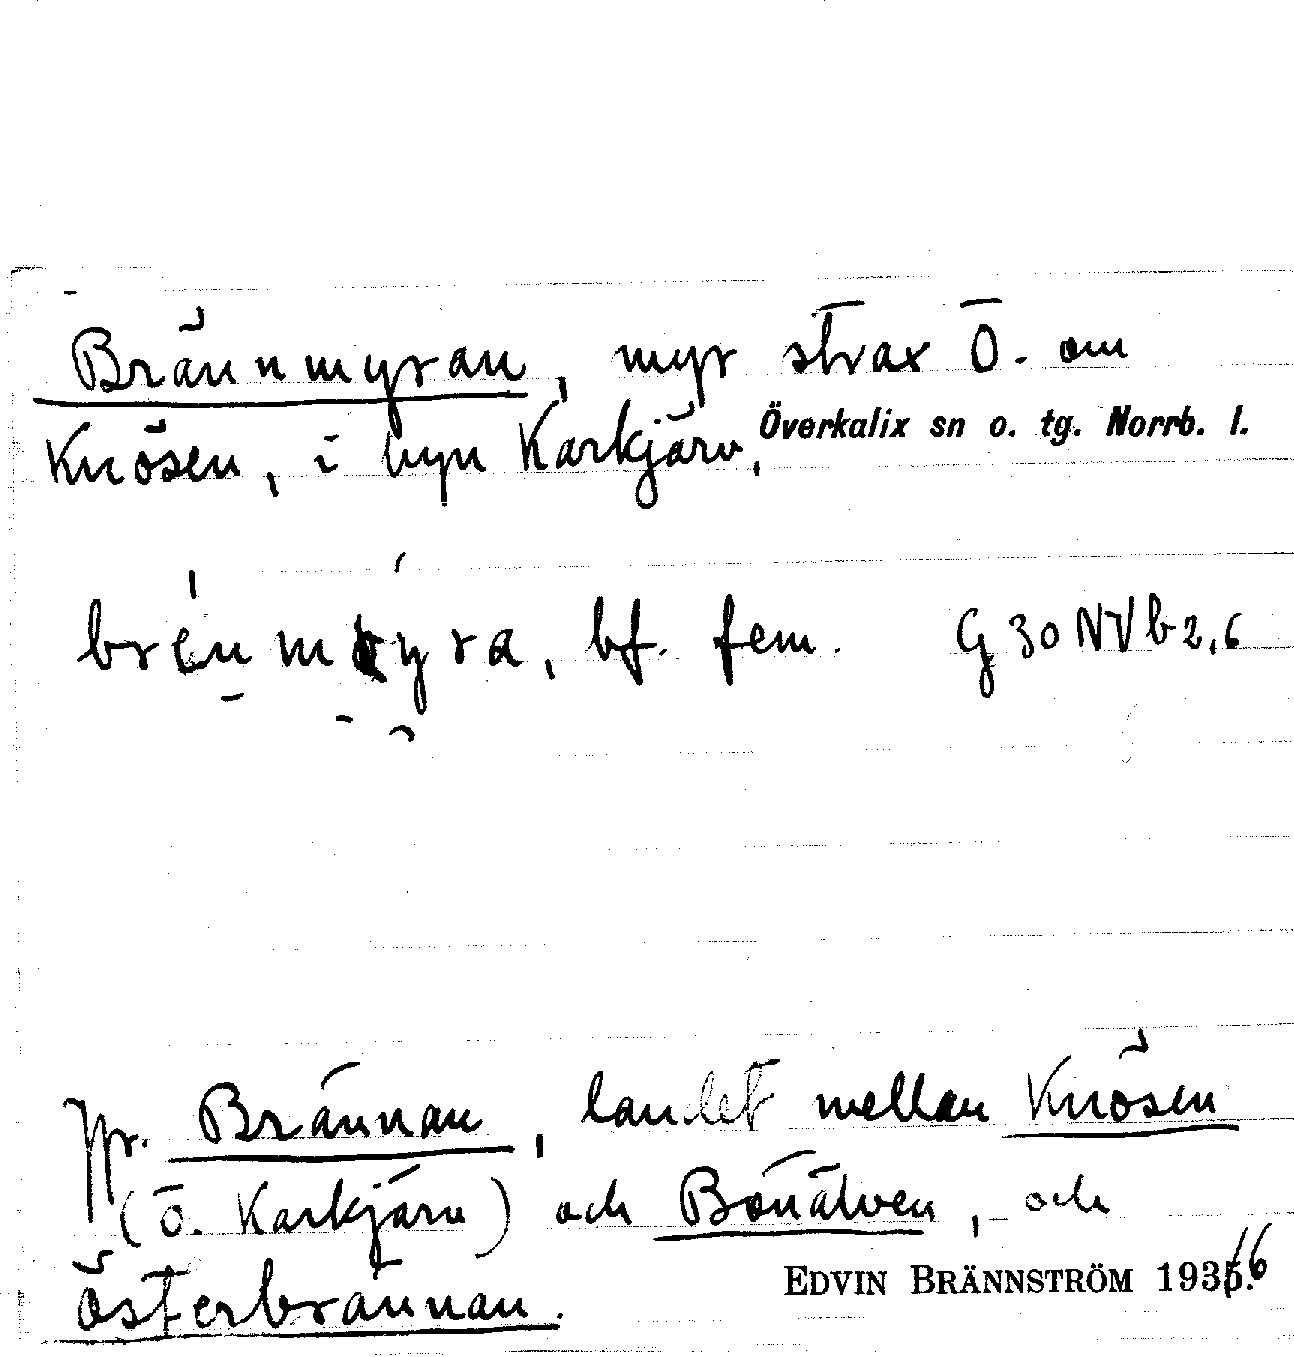 Brännmyran, myr strax Ö. om
Knösen, i byn Karkjärv, Överkalix sn o. tg. Norrb. l.
brénmýra, bf. fem. G 30 NV b 2,6
Jfr. Brännan, landet mellan Knösen
(Ö. Karkjärv) och Bönälven, och
Österbrännan. EDVIN BRÄNNSTRÖM 1936